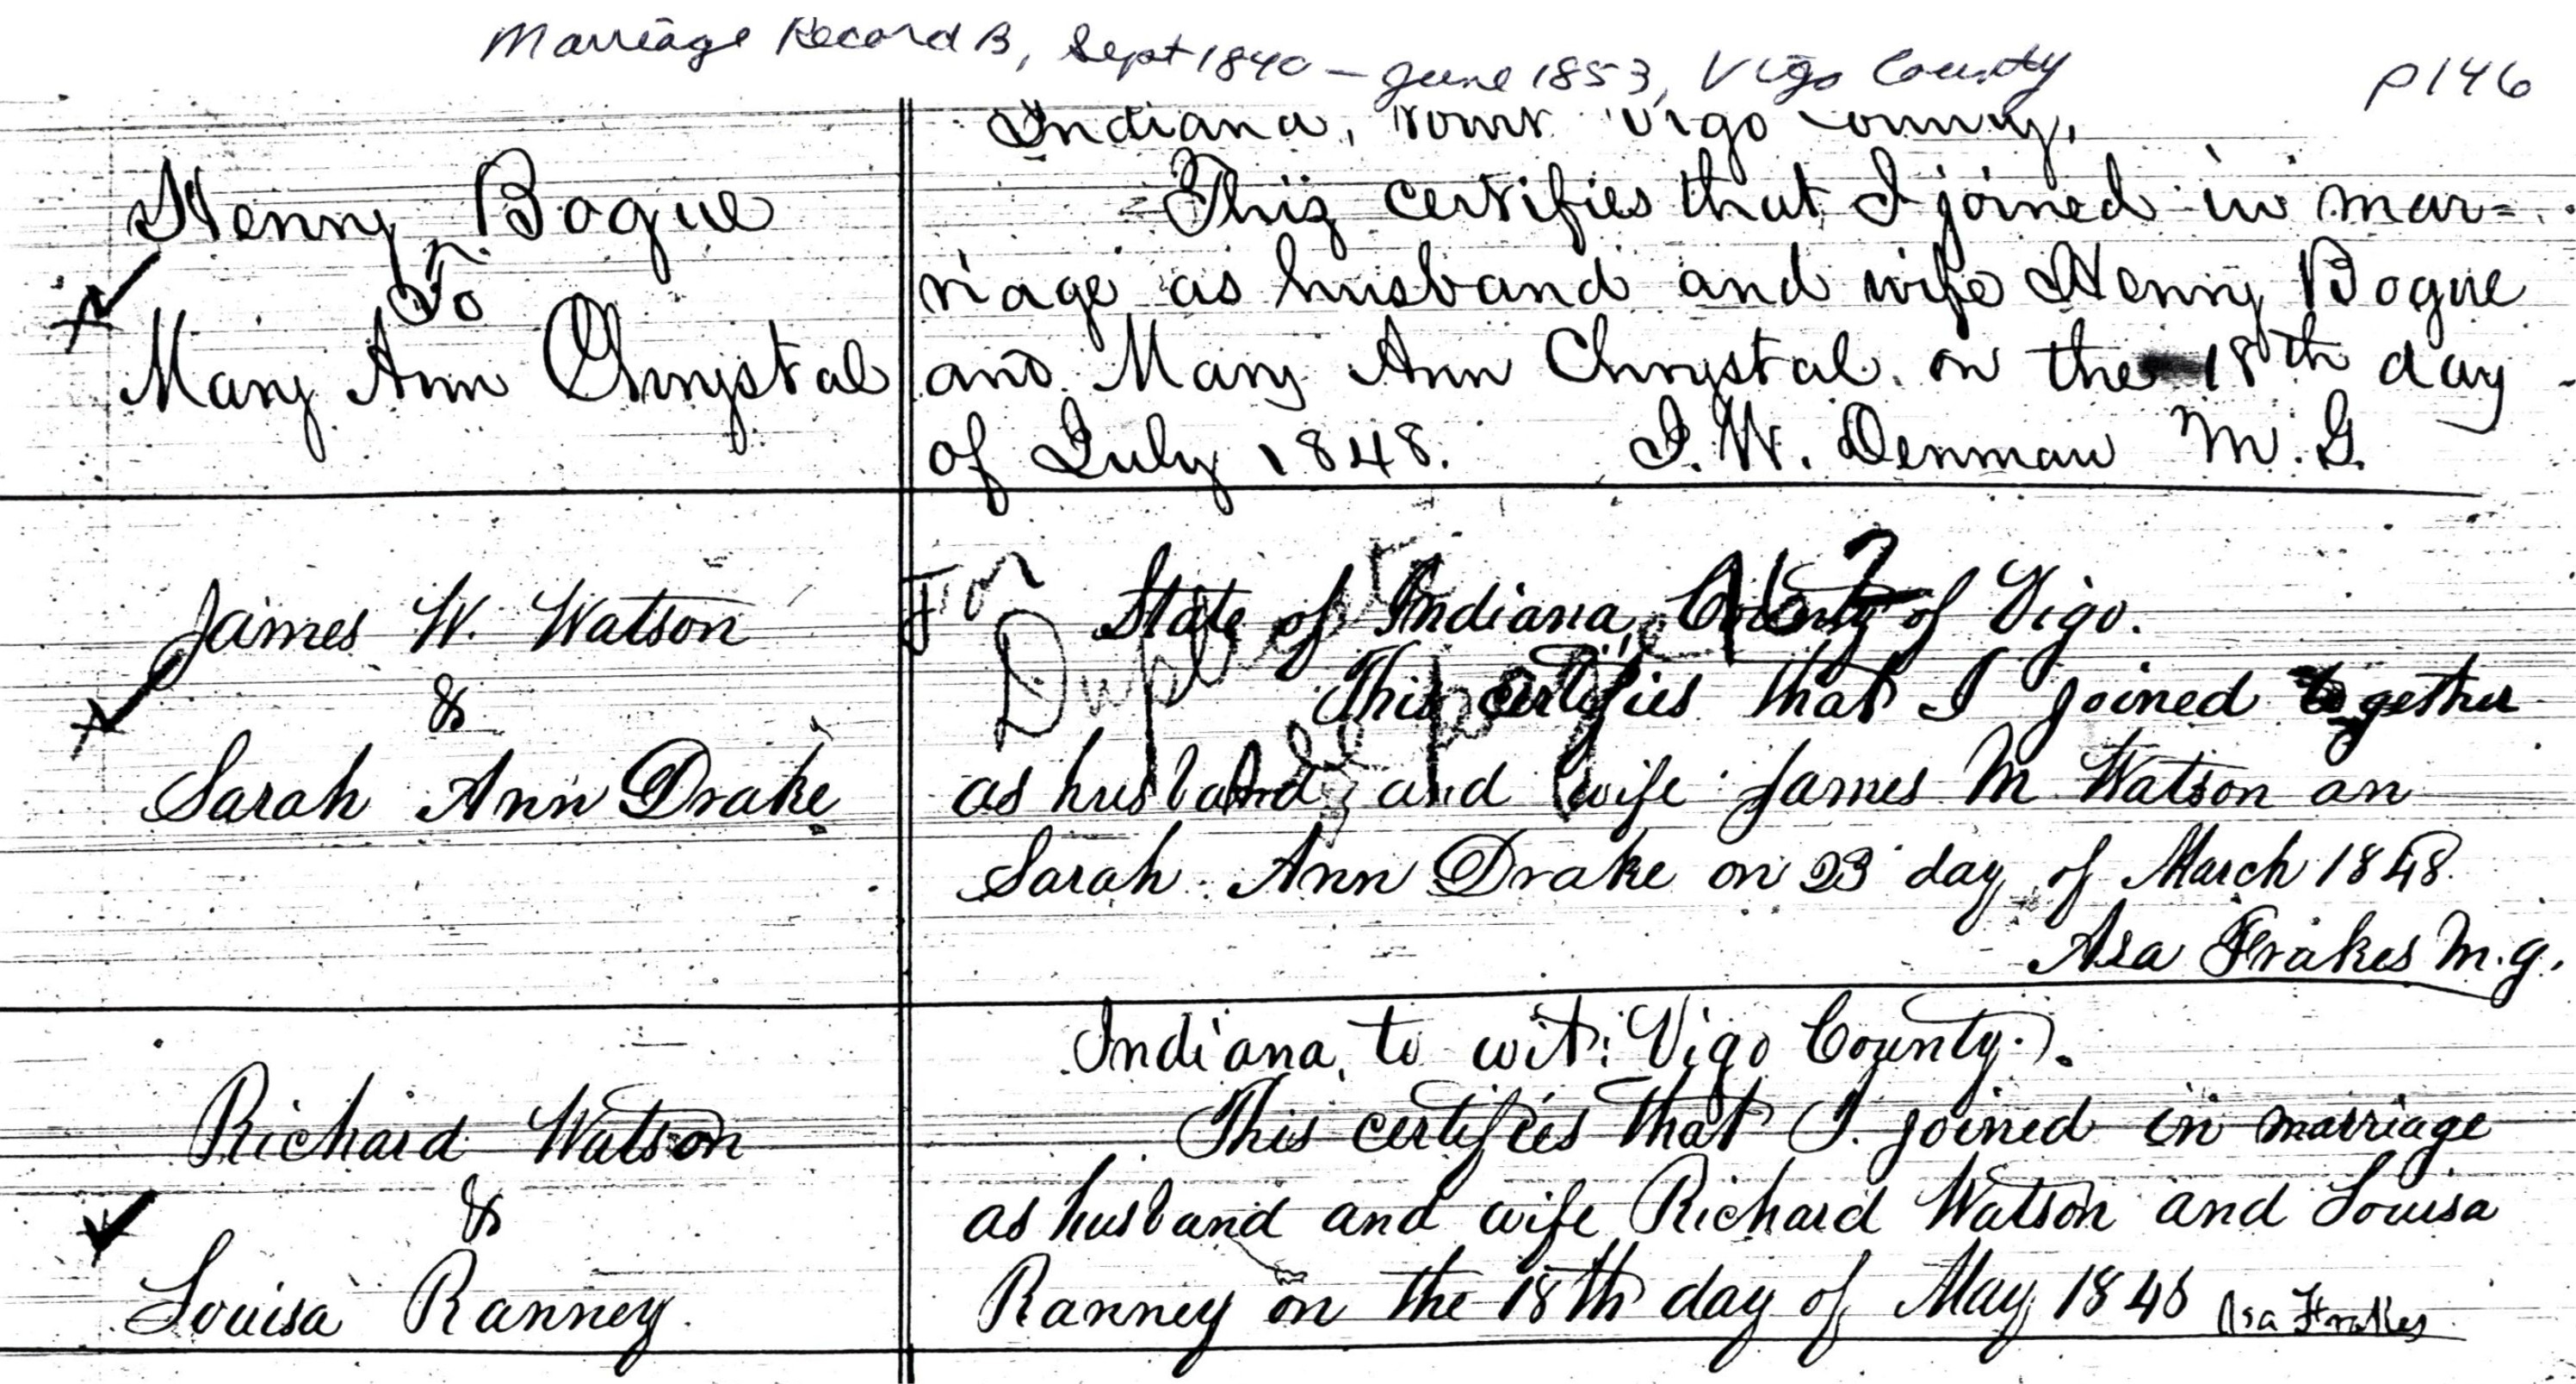 Marriage Record B, Sept 1840 - June 1853, Vigo County p146
Indiana, towit Vigo County,
Henry Bogue
To
Mary Ann Chrystal
This certifies that I joined in mar=
riage as husband and wife Henry Bogue
and Mary Ann Chrystal on the 18th day
of July 1848. I. W. Denman M. G.
James W. Watson
&
Sarah Ann Drake
For Duplicate
See page 162
State of Indiana, County of Vigo.
This certifies that I joined together
as husband and wife James M Watson an
Sarah Ann Drake on 23 day of March 1848.
Asa Frakes M.G.
Richard Watson
&
Louisa Ranney.
Indiana, to wit: Vigo County.
This certifies that I. joined in marriage
as husband and wife Richard Watson and Louisa
Ranney on the 18th day of May 1848 Asa Frakes